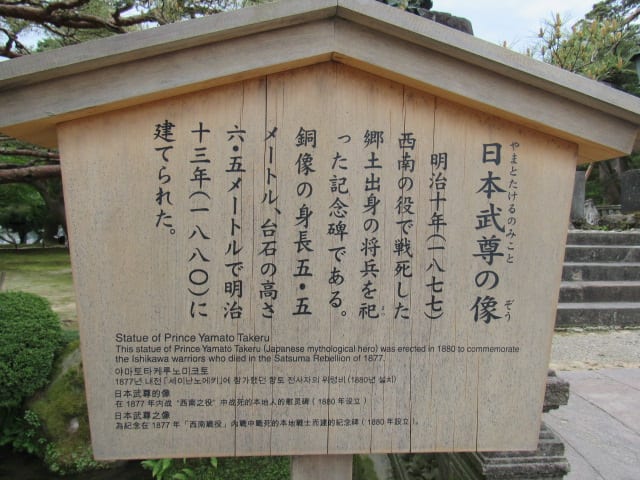 やまとたけるのみこと ぞう
日本武尊の像
明治十年(一八七七)
西南の役で戦死した
郷土出身の将兵を祀
った記念碑である。
銅像の身長五・五
メートル、台石の高さ
六・五メートルで明治
十三年(一八八〇)に
建てられた。
Statue of Prince Yamato Takeru
This statue of Prince Yamato Takeru (Japanese mythological hero) was erected in 1880 to commemorate
the Ishikawa warriors who died in the Satsuma Rebellion of 1877.
야마토타케루노미코토
1877년 내전 「세이난노에키」에 참가했던 향토 전사자의 위령비 (1880년 설치)
日本武尊的像
在 1877 年内战 “西南之役” 中战死的本地人的慰灵碑 ( 1880 年设立 )
日本武尊之像
為紀念在 1877 年「西南戰役」內戰中戰死的本地戰士而建的紀念碑 ( 1880 年設立 )。